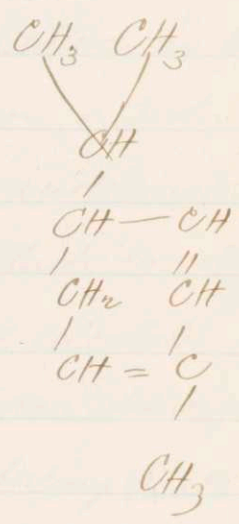 CH3 CH3
CH
CH — CH
CH2 CH
CH = C
CH3